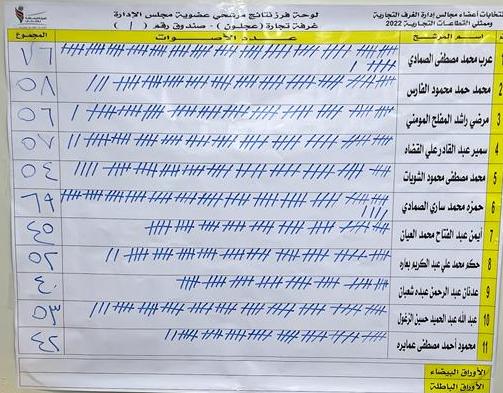 انتخابات أعضاء مجالس إدارة الغرف التجارية
وممثلي القطاعات التجارية 2022
لوحة فرز نتائج مرشحي عضوية مجلس الإدارة
غرفة تجارة ( عجلون ) - صندوق رقم ( )
اسم المرشح عدد الأصوات المجموع
1 عرب محمد مصطفى الصمادي ٧٦
2 محمد حمد محمود الفارس ٥٨
3 مرضي راشد المفلح المومني ٥٦
4 سمير عبد القادر علي القضاه ٥٧
5 محمد مصطفى محمود الشويات ٥٤
6 حمزه محمد ساري الصمادي ٦٩
7 أيمن عبد الفتاح محمد العيان ٤٥
8 حكم محمد علي عبد الكريم بعاره ٥٢
9 عدنان عبد الرحمن عبده شعبان ٤٠
10 عبد الله عبد الحميد حسين الزغول ٥٣
11 محمود أحمد مصطفى عمايره ٤٢
الأوراق البيضاء
الأوراق الباطلة